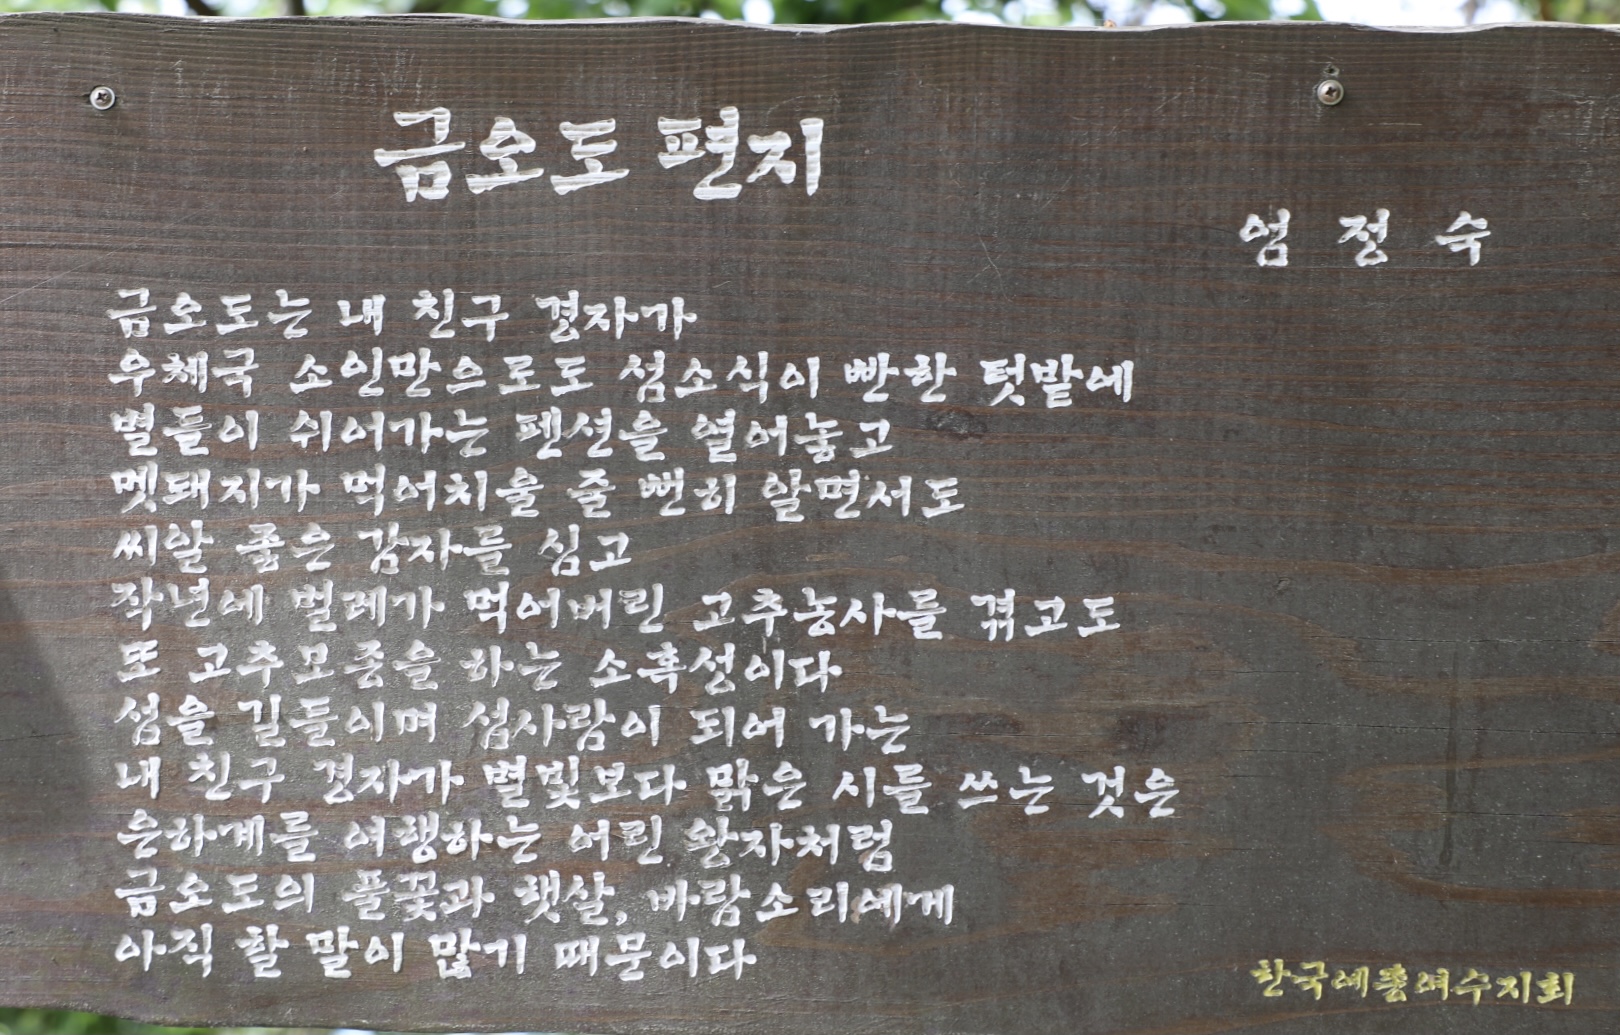 금오도 편지
엄 정 숙
금오도는 내 친구 경자가
우체국 소인만으로도 섬소식이 빤한 텃밭에
별들이 쉬어가는 펜션을 열어놓고
멧돼지가 먹어치울 줄 뻔히 알면서도
씨알 좋은 감자를 심고
작년에 벌레가 먹어버린 고추농사를 겪고도
또 고추모종을 하는 소혹성이다
섬을 길들이며 섬사람이 되어 가는
내 친구 경자가 별빛보다 맑은 시를 쓰는 것은
은하계를 여행하는 어린 왕자처럼
금오도의 풀꽃과 햇살, 바람소리에게
아직 할 말이 많기 때문이다
한국예총여수지회